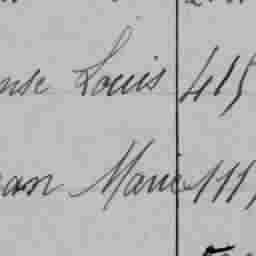 nse Louis 415
ean Marie 111